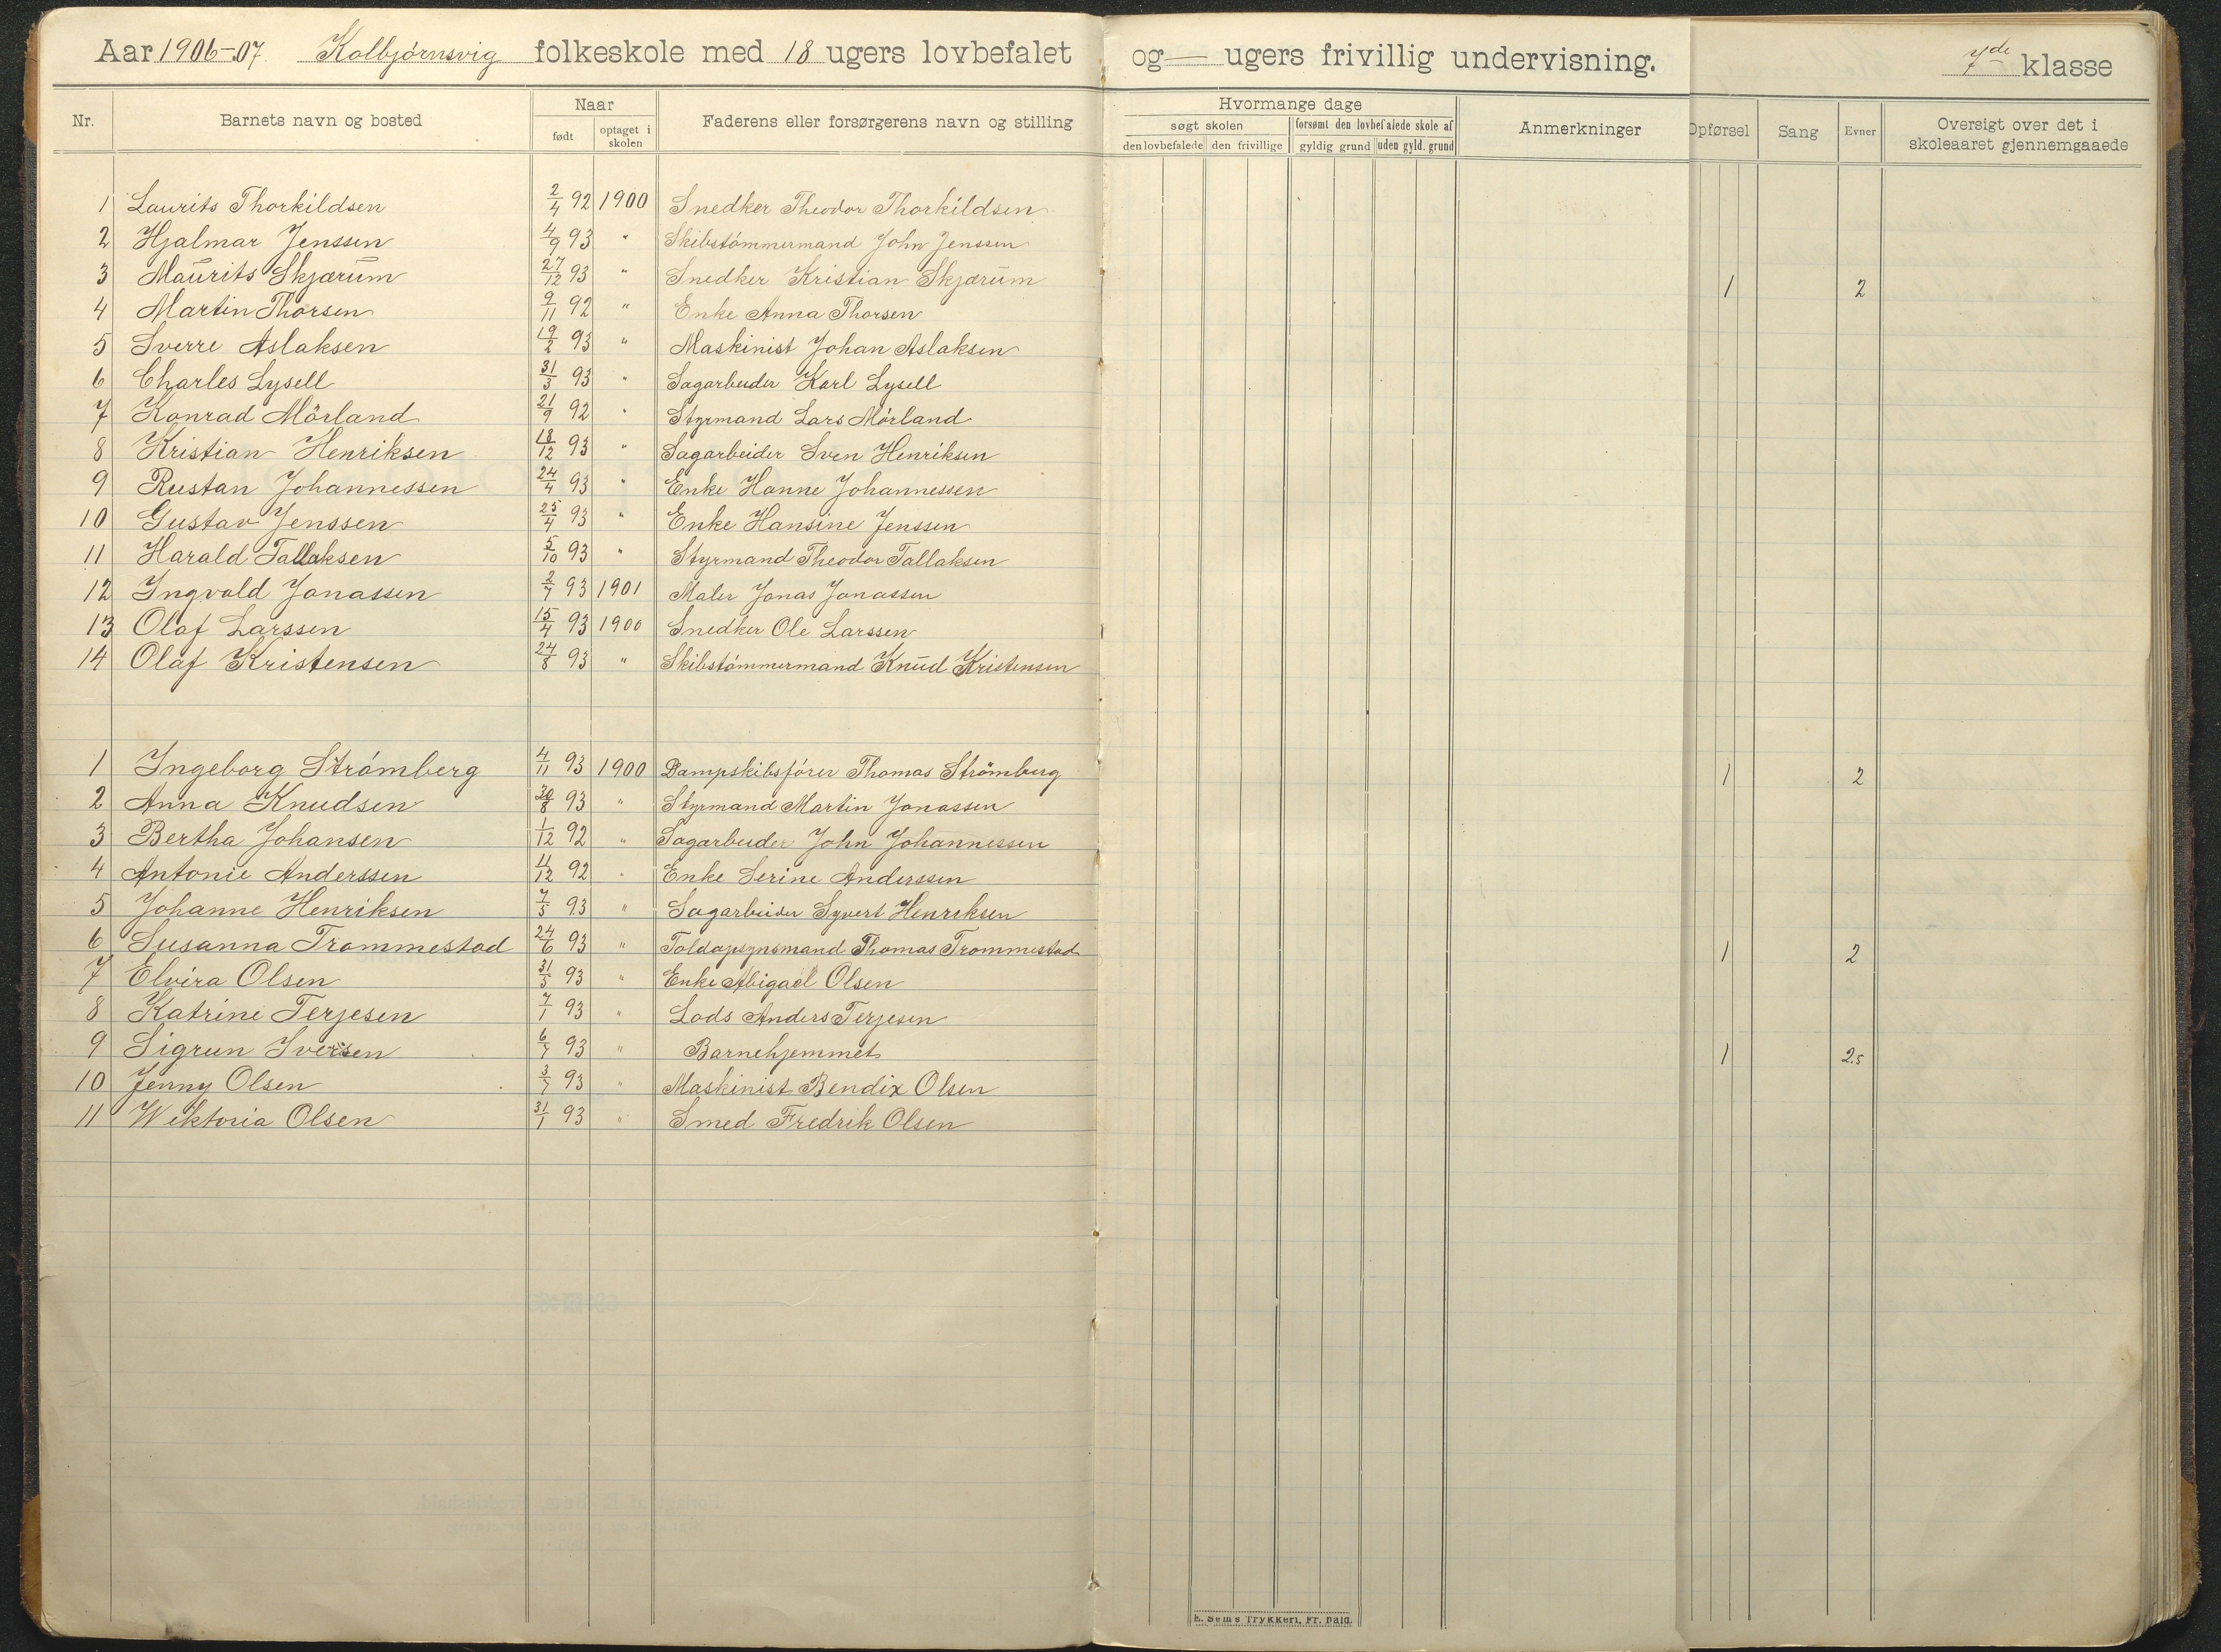 Aar 1906-07. Kolbjørnsvig folkeskole med 18 ugers lovbefalet og — ugers frivillig undervisning. 7de klasse
Nr. Barnets navn og bosted Naar født optaget i skolen Faderens eller forsørgerens navn og stilling Hvormange dage søgt skolen den lovbefalede den frivillige forsømt den lovbefalede skole af gyldig grund uden gyld. grund Anmerkninger Opførsel Sang Evner Oversigt over det i skoleaaret gjennemgaaede
1 Laurits Thorkildsen 2/4 92 1900 Snedker Theodor Thorkildsen
2 Hjalmar Jenssen 4/9 93 " Skibstömmermand John Jenssen
3 Maurits Skjærum 27/12 93 " Snedker Kristian Skjærum 1 2
4 Martin Thorsen 9/11 92 " Enke Anna Thorsen
5 Sverre Aslaksen 19/2 93 " Maskinist Johan Aslaksen
6 Charles Lysell 31/3 93 " Sagarbeider Karl Lysell
7 Konrad Mörland 21/9 92 " Styrmand Lars Mörland
8 Kristian Henriksen 18/12 93 " Sagarbeider Sven Henriksen
9 Rustan Johannessen 24/4 93 " Enke Hanne Johannessen
10 Gustav Jenssen 25/4 93 " Enke Hansine Jenssen
11 Harald Tallaksen 5/10 93 " Styrmand Theodor Tallaksen
12 Ingvald Jonassen 2/7 93 1901 Maler Jonas Jonassen
13 Olaf Larssen 15/4 93 1900 Snedker Ole Larssen
14 Olaf Kristensen 24/8 93 " Skibstömmermand Knud Kristensen
1 Ingeborg Strömberg 4/11 93 1900 Dampskibsförer Thomas Strömberg 1 2
2 Anna Knudsen 30/8 93 " Styrmand Martin Jonassen
3 Bertha Johansen 1/12 92 " Sagarbeider John Johannessen
4 Antonie Anderssen 11/12 92 " Enke Serine Anderssen
5 Johanne Henriksen 7/5 93 " Sagarbeider Syvert Henriksen
6 Susanna Trommestad 24/6 93 " Toldopsynsmand Thomas Trommestad 1 2
7 Elvira Olsen 31/5 93 " Enke Abigael Olsen
8 Katrine Terjesen 7/1 93 " Lods Anders Terjesen
9 Sigrun Iversen 6/7 93 " Barnehjemmet 1 2.5
10 Jenny Olsen 3/7 93 " Maskinist Bendix Olsen
11 Wiktoria Olsen 31/1 93 " Smed Fredrik Olsen
E. Sem's Trykkeri, Fr. hald.